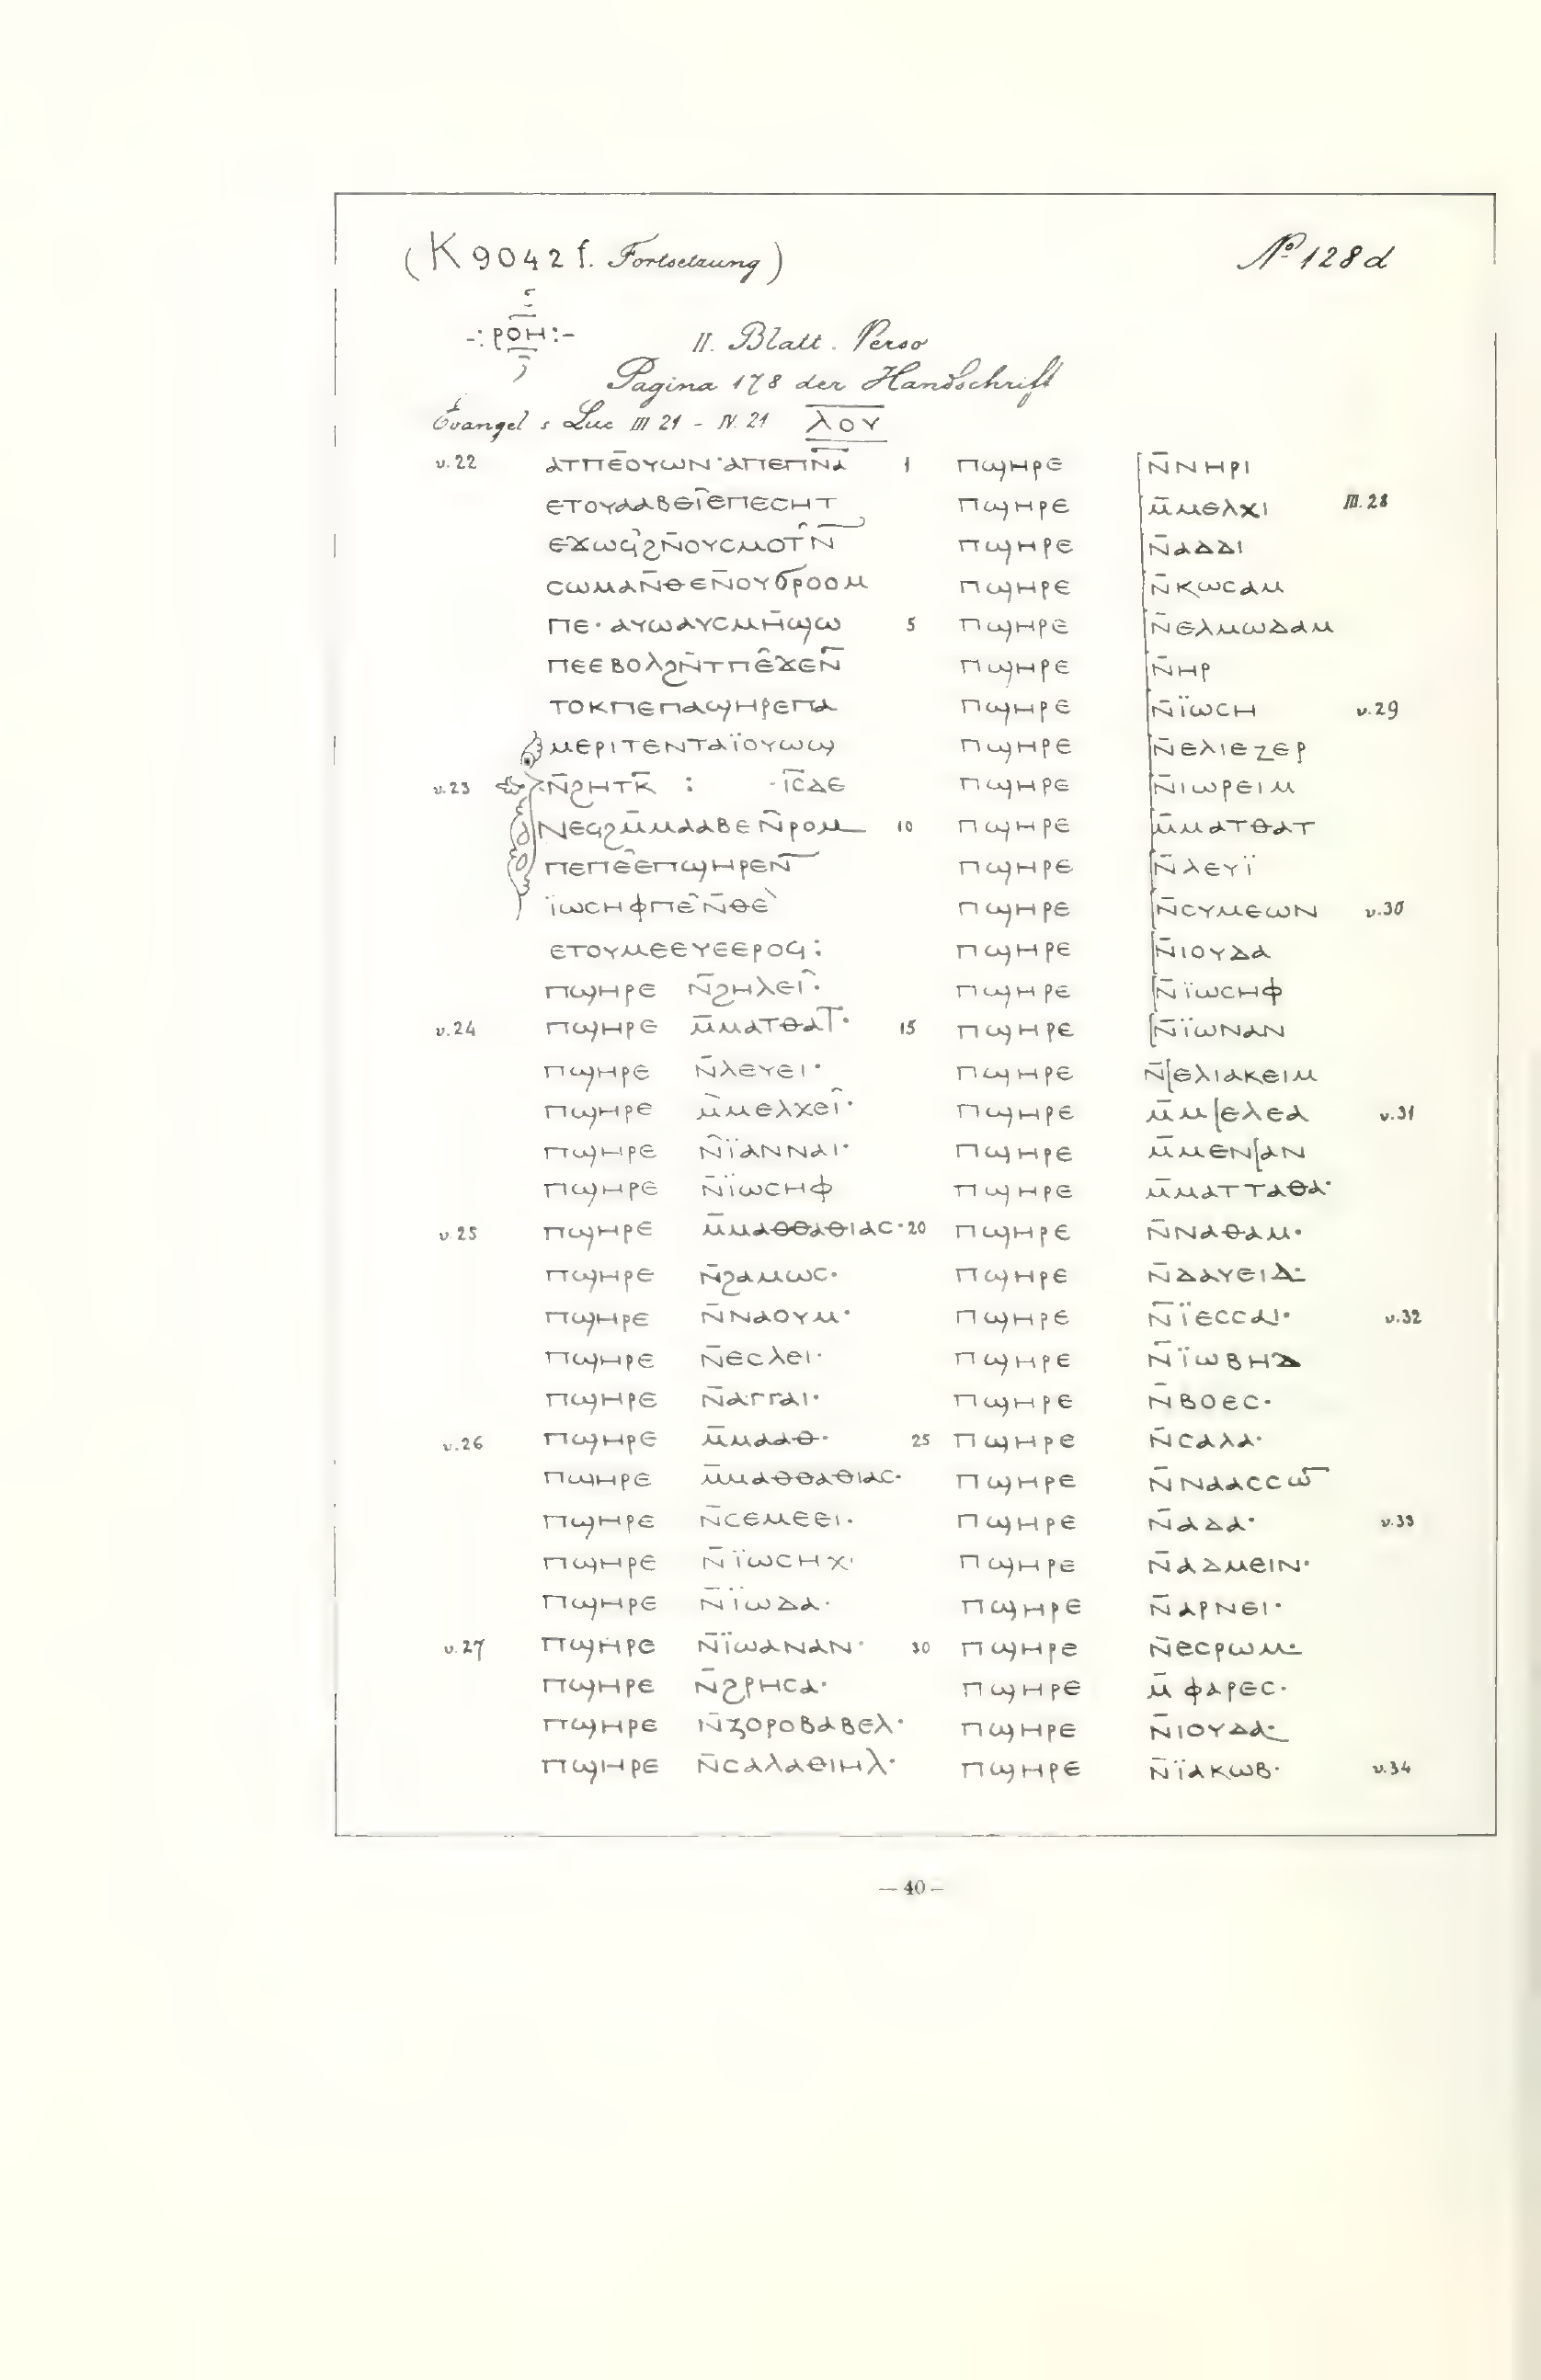 (K 9042 f. Fortsetzung)
No 128 d
-:ⲣⲟⲏ:-
II. Blatt. Verso
Pagina 178 der Handschrift
Evangel s Luc III 21 - IV. 21 ⲗⲟⲩ
v.22 ⲁⲧⲡⲉ̄ⲟⲩⲱⲛ·ⲁⲡⲉⲡⲛ̄ⲁ̄ 1
ⲉⲧⲟⲩⲁⲁⲃⲉⲓ̂ⲉⲡⲉⲥⲏⲧ
ⲉϫⲱϥ̀ϩⲛ̄ⲟⲩⲥⲙⲟⲧ̂ⲛ̄
ⲥⲱⲙⲁⲛ̄ⲑⲉⲛ̄ⲟⲩϭⲣⲟⲟⲙ
ⲡⲉ·ⲁⲩⲱⲁⲩⲥⲙⲏ̄ϣⲱ 5
ⲡⲉⲉⲃⲟⲗϩⲛ̄ⲧⲡⲉ̂ϫⲉⲛ̄
ⲧⲟⲕⲡⲉⲡⲁϣⲏⲣⲉⲡⲁ
ⲙⲉⲣⲓⲧⲉⲛⲧⲁⲓ̈ⲟⲩⲱϣ
v.23 ⲛ̄ϩⲏⲧⲕ̄ : -ⲓ̄ⲥ̄ⲇⲉ
ⲛⲉϥϩⲙ̄ⲙⲁⲁⲃⲉⲛ̄ⲣⲟⲙ 10
ⲡⲉⲡⲉ̂ⲉⲡϣⲏⲣⲉⲛ̄
ⲓ̈ⲱⲥⲏⲫⲡⲉ̂ⲛ̄ⲑⲉ̀
ⲉⲧⲟⲩⲙⲉⲉⲩⲉⲉⲣⲟϥ:
ⲡϣⲏⲣⲉ ⲛ̄ϩⲏⲗⲉⲓ̂·
v.24 ⲡϣⲏⲣⲉ ⲙ̄ⲙⲁⲧⲑⲁⲧ· 15
ⲡϣⲏⲣⲉ ⲛ̄ⲗⲉⲩⲉⲓ·
ⲡϣⲏⲣⲉ ⲙ̄ⲙⲉⲗⲭⲉⲓ̂·
ⲡϣⲏⲣⲉ ⲛ̄ⲓ̈ⲁⲛⲛⲁⲓ·
ⲡϣⲏⲣⲉ ⲛ̄ⲓ̈ⲱⲥⲏⲫ
v.25 ⲡϣⲏⲣⲉ ⲙ̄ⲙⲁⲑⲑⲁⲑⲓⲁⲥ· 20
ⲡϣⲏⲣⲉ ⲛ̄ϩⲁⲙⲱⲥ·
ⲡϣⲏⲣⲉ ⲛ̄ⲛⲁⲟⲩⲙ·
ⲡϣⲏⲣⲉ ⲛ̄ⲉⲥⲗⲉⲓ·
ⲡϣⲏⲣⲉ ⲛ̄ⲁⲅⲅⲁⲓ·
v.26 ⲡϣⲏⲣⲉ ⲙ̄ⲙⲁⲁⲑ· 25
ⲡϣⲏⲣⲉ ⲙ̄ⲙⲁⲑⲑⲁⲑⲓⲁⲥ·
ⲡϣⲏⲣⲉ ⲛ̄ⲥⲉⲙⲉⲉⲓ·
ⲡϣⲏⲣⲉ ⲛ̄ⲓ̈ⲱⲥⲏⲭ·
ⲡϣⲏⲣⲉ ⲛ̄ⲓ̈ⲱⲇⲁ·
v.27 ⲡϣⲏⲣⲉ ⲛ̄ⲓ̈ⲱⲁⲛⲁⲛ· 30
ⲡϣⲏⲣⲉ ⲛ̄ϩⲣⲏⲥⲁ·
ⲡϣⲏⲣⲉ ⲛ̄ⲍⲟⲣⲟⲃⲁⲃⲉⲗ·
ⲡϣⲏⲣⲉ ⲛ̄ⲥⲁⲗⲁⲑⲓⲏⲗ·
ⲡϣⲏⲣⲉ [ⲛ̄ⲛⲏⲣⲓ
ⲡϣⲏⲣⲉ [ⲙ̄ⲙⲉⲗⲭⲓ III.28
ⲡϣⲏⲣⲉ [ⲛ̄ⲁⲇⲇⲓ
ⲡϣⲏⲣⲉ [ⲛ̄ⲕⲱⲥⲁⲙ
ⲡϣⲏⲣⲉ [ⲛ̄ⲉⲗⲙⲱⲇⲁⲙ
ⲡϣⲏⲣⲉ [ⲛ̄ⲏⲣ
ⲡϣⲏⲣⲉ [ⲛ̄ⲓ̈ⲱⲥⲏ v.29
ⲡϣⲏⲣⲉ [ⲛ̄ⲉⲗⲓⲉⲍⲉⲣ
ⲡϣⲏⲣⲉ [ⲛ̄ⲓⲱⲣⲉⲓⲙ
ⲡϣⲏⲣⲉ [ⲙ̄ⲙⲁⲧⲑⲁⲧ
ⲡϣⲏⲣⲉ [ⲛ̄ⲗⲉⲩⲓ̈
ⲡϣⲏⲣⲉ [ⲛ̄ⲥⲩⲙⲉⲱⲛ v.30
ⲡϣⲏⲣⲉ [ⲛ̄ⲓⲟⲩⲇⲁ
ⲡϣⲏⲣⲉ [ⲛ̄ⲓ̈ⲱⲥⲏⲫ
ⲡϣⲏⲣⲉ [ⲛ̄ⲓ̈ⲱⲛⲁⲛ
ⲡϣⲏⲣⲉ ⲛ̄[ⲉⲗⲓⲁⲕⲉⲓⲙ
ⲡϣⲏⲣⲉ ⲙ̄ⲙ[ⲉⲗⲉⲁ v.31
ⲡϣⲏⲣⲉ ⲙ̄ⲙⲉⲛ[ⲁⲛ
ⲡϣⲏⲣⲉ ⲙ̄ⲙⲁⲧⲧⲁⲑⲁ·
ⲡϣⲏⲣⲉ ⲛ̄ⲛⲁⲑⲁⲙ·
ⲡϣⲏⲣⲉ ⲛ̄ⲇⲁⲩⲉⲓⲇ·
ⲡϣⲏⲣⲉ ⲛ̄ⲓ̈ⲉⲥⲥⲁⲓ· v.32
ⲡϣⲏⲣⲉ ⲛ̄ⲓ̈ⲱⲃⲏⲇ
ⲡϣⲏⲣⲉ ⲛ̄ⲃⲟⲉⲥ·
ⲡϣⲏⲣⲉ ⲛ̄ⲥⲁⲗⲁ·
ⲡϣⲏⲣⲉ ⲛ̄ⲛⲁⲁⲥⲥⲱ̄
ⲡϣⲏⲣⲉ ⲛ̄ⲁⲇⲁ· v.33
ⲡϣⲏⲣⲉ ⲛ̄ⲁⲇⲙⲉⲓⲛ·
ⲡϣⲏⲣⲉ ⲛ̄ⲁⲣⲛⲉⲓ·
ⲡϣⲏⲣⲉ ⲛ̄ⲉⲥⲣⲱⲙ·
ⲡϣⲏⲣⲉ ⲙ̄ⲫⲁⲣⲉⲥ·
ⲡϣⲏⲣⲉ ⲛ̄ⲓⲟⲩⲇⲁ·
ⲡϣⲏⲣⲉ ⲛ̄ⲓ̈ⲁⲕⲱⲃ· v.34
— 40 —